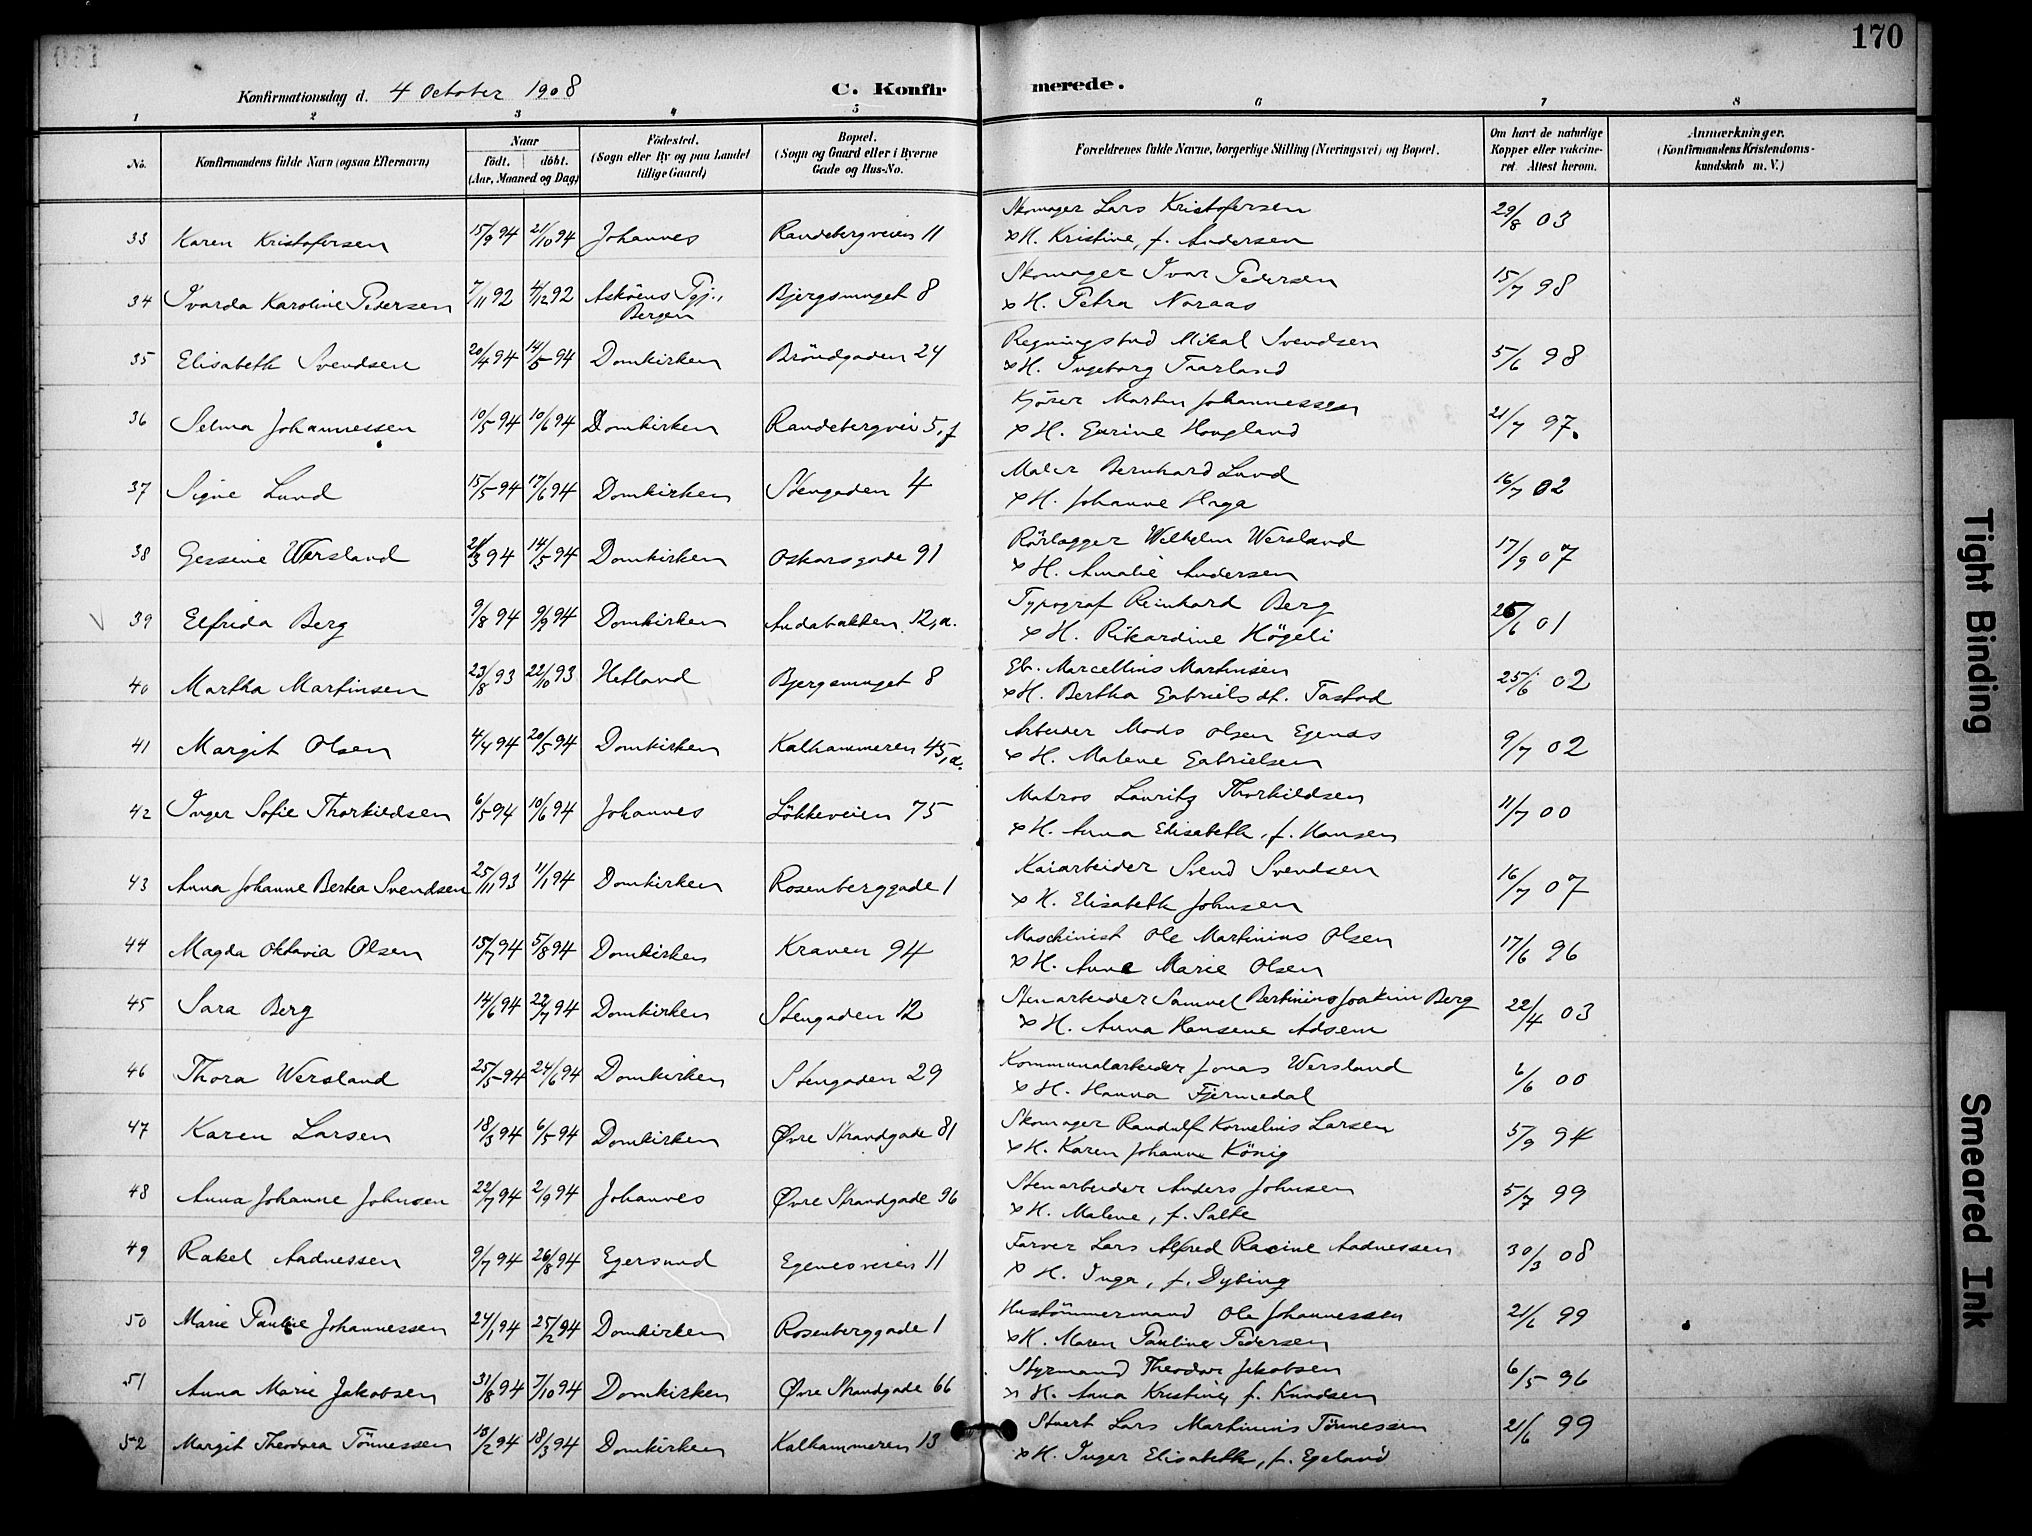 170
Konfirmationsdag d. 4 October 1908 C. Konfirmerede.
1 2 3 4 5 6 7 8
No. Konfirmandens fulde Navn (ogsaa Efternavn) Naar født. døbt. (Aar, Maaned og Dag) Fødested. (Sogn eller By og paa Landet tillige Gaard) Bopæl. (Sogn og Gaard eller i Byerne Gade og Hus-No. Forældrenes fulde Navne, borgerlige Stilling (Næringsvei) og Bopæl. Om havt de naturlige Kopper eller vakcineret. Attest herom. Anmærkninger. (Konfirmandens Kristendomskundskab m. V.)
33 Karen Kristofersen 15/9 94 21/10 94 Johannes Randebergveien 11 Skomager Lars Kristofersen 29/8 03
x H. Kristine, f. Andersen
34 Ivarda Karoline Pedersen 7/11 92 4/12 92 Askøens Pgj., Bergen Bjergsmuget 8 Skomager Ivar Pedersen 15/7 98
x H. Petra Noraas
35 Elisabeth Svendsen 20/4 94 14/5 94 Domkirken Brøndgaden 24 Regningsbud Mikal Svendsen 5/6 98
x H. Ingeborg Tarland
36 Selma Johannessen 10/5 94 10/6 94 Domkirken Randebergvei 5, f Kjører Martin Johannessen 21/7 97.
x H. Gurine Hougland
37 Signe Lund 15/5 94 17/6 94 Domkirken Stengaden 4 Maler Bernhard Lund 16/7 02
x H. Johanne Haga
38 Gessine Wersland 21/3 94 14/5 94 Domkirken Oskarsgade 91 Rørlægger Wilhelm Wersland 17/9 07
x H. Amalie Andersen
39 Elfrida Berg 9/8 94 9/9 94 Domkirken Andabakken 12, a. Typograf Reinhard Berg 26/6 01
x H. Rikardine Høgeli
40 Martha Martinsen 23/8 93 22/10 93 Hetland Bjergsmuget 8 Eb. Marcellius Martinsen 25/6 02
x H. Bertha Gabrielsdt. Tastad
41 Margit Olsen 4/4 94 20/5 94 Domkirken Kalhammeren 45, a. Arbeider Mads Olsen Egenæs 9/7 02
x H. Malene Gabrielsen
42 Inger Sofie Thorkildsen 6/5 94 10/6 94 Johannes Løkkeveien 75 Matros Lauritz Thorkildsen 11/7 00
x H. Anna Elisabeth, f. Hansen
43 Anna Johanne Bertea Svendsen 25/11 93 11/1 94 Domkirken Rosenberggade 1 Kaiarbeider Svend Svendsen 16/7 07
x H. Elisabeth Johnsen
44 Magda Oktavia Olsen 15/7 94 5/8 94 Domkirken Kraven 94 Maschinist Ole Martinius Olsen 17/6 96
x H. Anne Marie Olsen
45 Sara Berg 14/6 94 22/7 94 Domkirken Stengaden 12 Stenarbeider Samuel Bertinius Joakim Berg 22/4 03
x H. Anna Hansene Adsem
46 Thora Wersland 25/5 94 24/6 94 Domkirken Stengaden 29 Kommunalarbeider Jonas Wersland 6/6 00
x H. Hanna Fjermedal
47 Karen Larsen 18/3 94 6/5 94 Domkirken Øvre Strandgade 81 Skomager Randulf Kornelius Larsen 5/9 94
x H. Karen Johanne König
48 Anna Johanne Johnsen 22/7 94 2/9 94 Johannes Øvre Strandgade 96 Stenarbeider Anders Johnsen 5/7 99
x H. Malene, f. Salte
49 Rakel Aadnessen 9/7 94 26/8 94 Egersund Egenesveien 11 Farver Lars Alfred Racine Aadnessen 30/3 08
x H. Inga, f. Dybing
50 Marie Pauline Johannessen 24/1 94 25/2 94 Domkirken Rosenberggade 1 Hustømmermand Ole Johannessen 21/6 99
x H. Maren Pauline Pedersen
51 Anna Marie Jakobsen 31/8 94 7/10 94 Domkirken Øvre Strandgade 66 Styrmand Theodor Jakobsen 6/5 96
x H. Anna Kristine, f. Knudsen
52 Margit Theodora Tönnessen 13/2 94 18/3 94 Domkirken Kalhammeren 13 Stuert Lars Martinius Tönnessen 21/6 99
x H. Inger Elisabeth, f. Egeland
Tight Binding
Smeared Ink